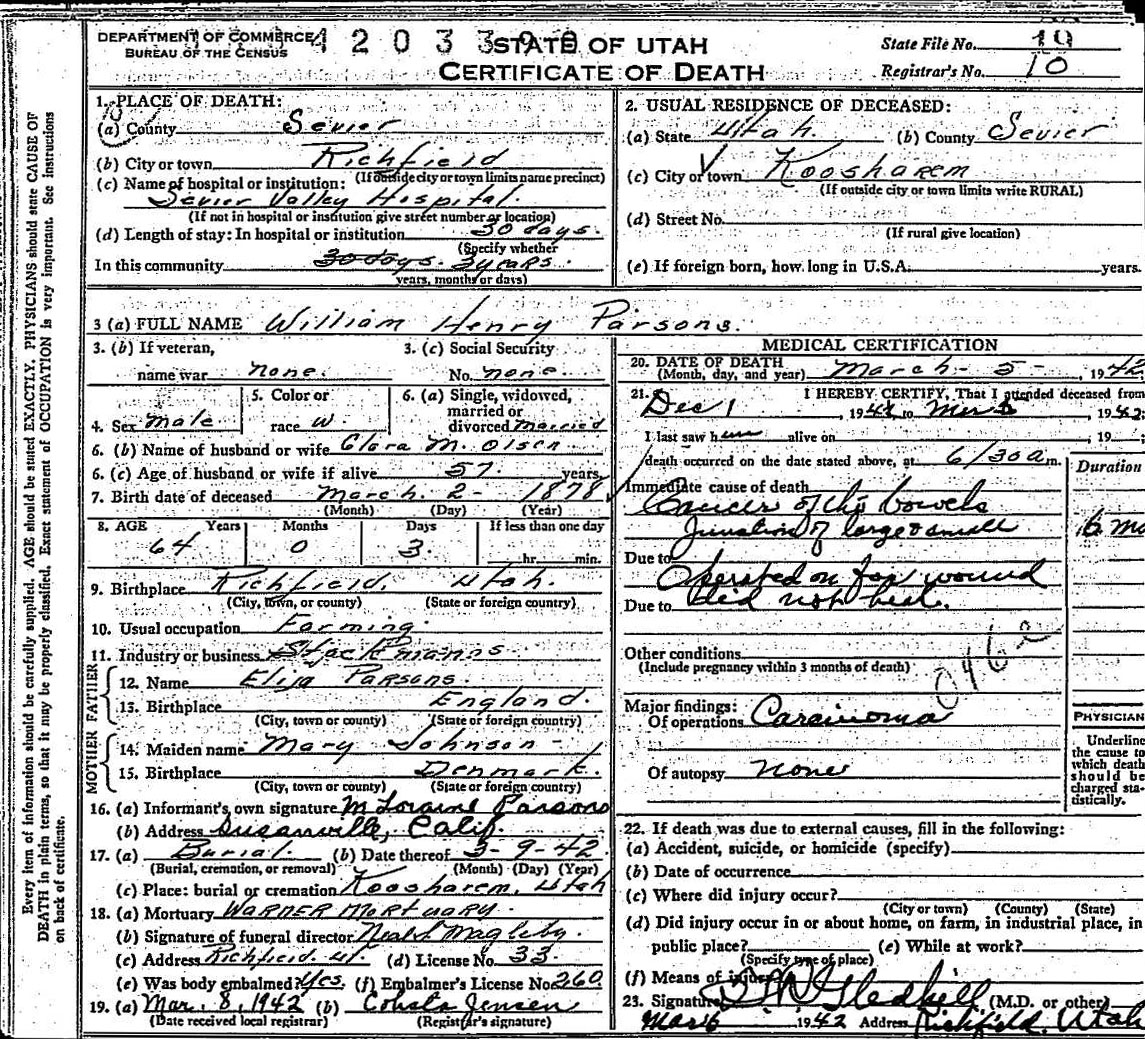 DEPARTMENT OF COMMERCE
BUREAU OF THE CENSUS
STATE OF UTAH
CERTIFICATE OF DEATH
State File No. 19
Registrar's No. 10
Every item of information should be carefully supplied. AGE should be stated EXACTLY. PHYSICIANS should state CAUSE OF
DEATH in plain terms, so that it may be properly classified. Exact statement of OCCUPATION is very important. See instructions
on back of certificate.
1. PLACE OF DEATH:
(a) County Sevier
(b) City or town Richfield
(If outside city or town limits name precinct)
(c) Name of hospital or institution:
Sevier Valley Hospital.
(If not in hospital or institution give street number or location)
(d) Length of stay: In hospital or institution 30 days.
(Specify whether
In this community 30 days. 3 years.
years, months or days)
2. USUAL RESIDENCE OF DECEASED:
(a) State Utah. (b) County Sevier
(c) City or town Koosharem
(If outside city or town limits write RURAL)
(d) Street No.
(If rural give location)
(e) If foreign born, how long in U.S.A. years.
3 (a) FULL NAME William Henry Parsons.
3. (b) If veteran,
name war none.
3. (c) Social Security
No. none.
4. Sex male
5. Color or
race W.
6. (a) Single, widowed,
married or
divorced Married
6. (b) Name of husband or wife Clara M. Olsen
6. (c) Age of husband or wife if alive 57 years
7. Birth date of deceased March. 2 - 1878
(Month) (Day) (Year)
8. AGE Years Months Days If less than one day
64 0 3. hr. min.
9. Birthplace Richfield, Utah.
(City, town, or county) (State or foreign country)
10. Usual occupation Farming
11. Industry or business
FATHER
12. Name Elija Parsons.
13. Birthplace England.
(City, town or county) (State or foreign country)
MOTHER
14. Maiden name Mary Johnson -
15. Birthplace Denmark.
(City, town or county) (State or foreign country)
16. (a) Informant's own signature M Loraine Parsons
(b) Address Susanville, Calif.
17. (a) Burial. (b) Date thereof 3-9-42
(Burial, cremation, or removal) (Month) (Day) (Year)
(c) Place: burial or cremation Koosharem, Utah
18. (a) Mortuary WARNER MORTUARY.
(b) Signature of funeral director Neal Magleby.
(c) Address Richfield. Ut. (d) License No. 33.
(e) Was body embalmed? Yes. (f) Embalmer's License No. 260
19. (a) Mar. 8, 1942 (b) Jensen
(Date received local registrar) (Registrar's signature)
MEDICAL CERTIFICATION
20. DATE OF DEATH
(Month, day, and year) March - 5 - , 1942
21. I HEREBY CERTIFY, That I attended deceased from
Dec 1, 1941 to Mar 5, 1942.
I last saw him alive on , 19
death occurred on the date stated above, at 6/30 a m.
Duration
Immediate cause of death
Cancer of the bowels
Junction of large & small
6 mo
Due to
Operated on Jan wound
Due to did not heal.
Other conditions
(Include pregnancy within 3 months of death)
Major findings:
Of operations Carcinoma
Of autopsy none
PHYSICIAN
Underline
the cause to
which death
should be
charged sta-
tistically.
22. If death was due to external causes, fill in the following:
(a) Accident, suicide, or homicide (specify)
(b) Date of occurrence
(c) Where did injury occur?
(City or town) (County) (State)
(d) Did injury occur in or about home, on farm, in industrial place, in
public place? (e) While at work?
(Specify type of place)
(f) Means of injury
23. Signature Gledhill (M.D. or other)
Mar 6 1942 Address Richfield, Utah